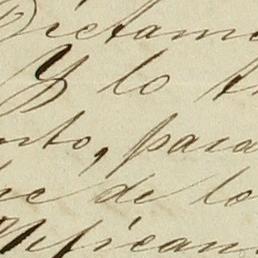 Dictam
Y lo t
nto, para
ue de lo
ifican